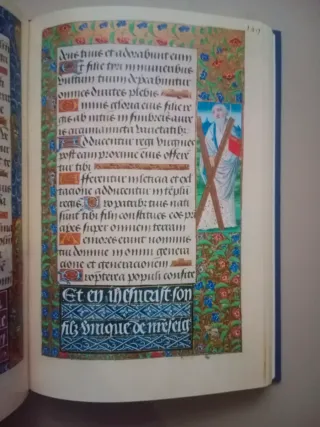 deus tuus et adorabunt eum
Et filie tyri in muneribus
vultum tuum deprecabuntur
omnes divites plebis
Omnis gloria eius filie re
gis ab intus in fimbriis aure
is circumamicta varietatibus
Adducentur regi virgines
post eam proxime eius offeren
tur tibi
Afferentur in leticia et ex
ltacione adducentur in templum
regis Pro patribus tuis nati
sunt tibi filii constitues eos prin
cipes super omnem terram
Memores erunt nominis
tui domine in omni genera
cione et generacionem
Propterea populi confite
Et en ihesucrist son
filz unique nre seig